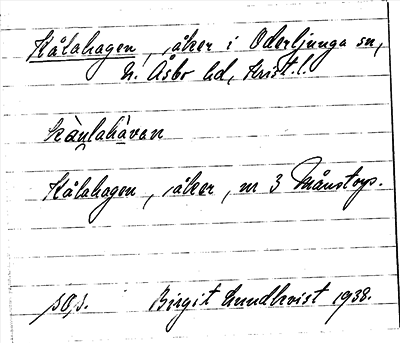 Kålahagen, åker i Oderljunga sn,
N. Åsbo hd, Krist. l.
kàu̯lahàvan
Kålahagen, åker, nr 3 Månstorp.
Birgit Lundkvist 1938.